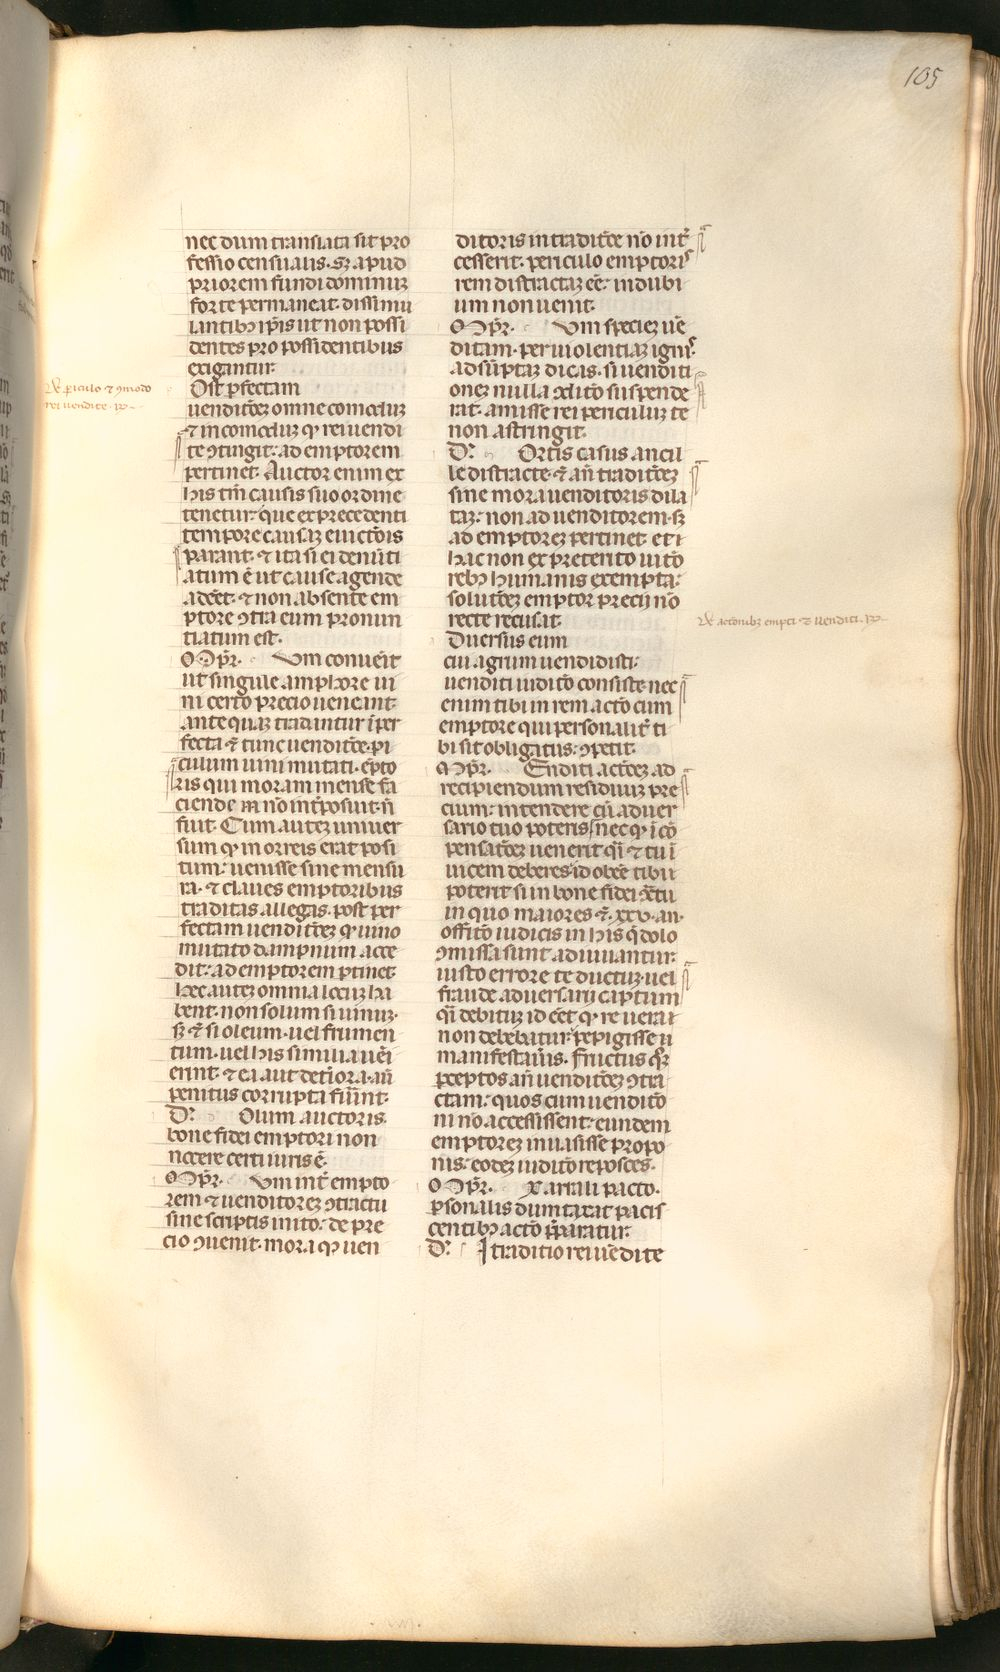 105
nec dum translata sit pro
fessio censualis. sꝫ apud
priorem fundi dominuꝫ
forte permaneat. dissimu
lantibꝫ ip̄is ut non possi
dentes pro possidentibus
exigantur.
De p̱iculo ⁊ ꝯmodo
rei uendite. Rͣ
Ost p̱fectam
uenditōeꝫ omne comoduꝫ
⁊ incomoduꝫ qꝫ rei uendi
te ꝯtingit. ad emptorem
pertinet. Auctor enim ex
his tm̄ causis suo ordine
tenetur. que ex precedenti
tempore causaꝫ euictōis
parant. ⁊ ita si ei denūti
atum ē ut cause agende
adeēt. ⁊ non absente em
ptore ꝯtra eum pronun
tiatum est.
Imp̄r. Vm conuēit
ut singule amphore ui
ni certo precio ueneant.
ante quaꝫ tradantur īper
fecta ⁊ tunc uenditōe. pi
culum uini mutati. ēpto
ris qui moram mense fa
ciende nō int̄posuit. ñ
fuit. Cum auteꝫ uniuer
sum qꝫ in orreis erat posi
tum: uenisse sine mensu
ra. ⁊ claues emptoribus
traditas allegas. post per
fectam uenditōeꝫ qꝫ uino
mutato dampnum acce
dit: ad emptorem p̱tinet.
hec auteꝫ omnia locuꝫ ha
bent. non solum si uinuꝫ.
sꝫ ⁊ si oleum. uel frumen
tum. uel his similia uēi
erint. ⁊ ea aut det̄iora. añ
penitus corrupta fiūnt.
D̄. Dum auctoris
bone fidei emptori non
nocere certi iuris ē.
Imp̄r. Vm int̄ empto
rem ⁊ uenditoreꝫ ꝯtractu
sine scriptis inito: de pre
cio ꝯuenit. mora qꝫ uen
ditoris in traditōe nō int̄
cesserit. periculo emptoris
rem distractaꝫ eē: in dubi
um non uenit.
Imp̄r. Vm specieꝫ uē
ditam. per uiolentiaꝫ ignis
adsūptaꝫ dicas. si uenditi
oneꝫ nulla ꝯditō suspende
rat. amisse rei periculuꝫ te
non astringit.
D̄. Ortis casus ancil
le distracte. ⁊ añ traditōeꝫ
sine mora uenditoris dila
taꝫ: non ad uenditorem. sꝫ
ad emptoreꝫ pertinet. et i
hac non ex preterito uitō
rebꝫ humanis exempta:
solutōeꝫ emptor precij nō
recte recusat.
De actonibꝫ empti ⁊ uenditi. Rͣ
Duersus eum
cui agrum uendidisti:
uenditi iuditō consiste. nec
enim tibi in rem actō cum
emptore qui personalit̄ ti
bi sit obligatus: ꝯpetit.
Imp̄r. Enditi actōeꝫ ad
recipiendum residuuꝫ pre
cium: intendere cū aduer
sario tuo poteris. nec qꝫ ī cō
pensatōeꝫ uenerit qī ⁊ tu ī
uicem deberes id obēe tibi
poterit si in bone fidei ꝯtū
in quo maiores ⁊. xxv. an.
offitō iudicis in his q̄ dolo
ꝯmissa sunt adiuuantur.
iusto errore te ductuꝫ. uel
fraude aduersarij captum
qī debituꝫ id eēt qꝫ re uera
non debebatur. pepigisse
manifestaūis. Fructus qꝫ
p̱ceptos añ uenditōeꝫ ꝯtra
ctam: quos cum uenditō
ni nō accessissent: eundem
emptoreꝫ inuasisse propo
nis. eodeꝫ iuditō reposces.
Imp̄r. X arrali pacto.
p̱sonalis dumtaxat pacis
centibꝫ actō p̄paratur.
D̄. I traditio rei uēdite